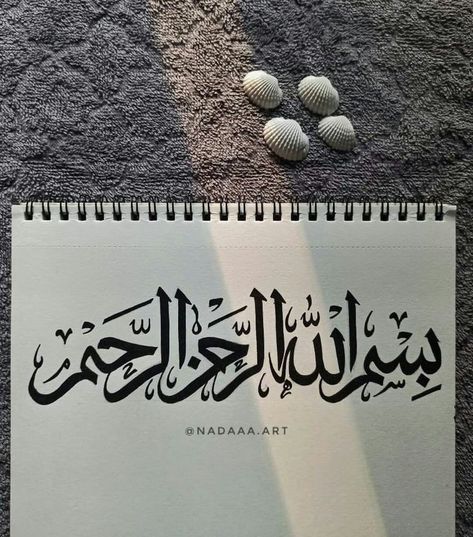 بِسْمِ اللّٰهِ الرَّحْمٰنِ الرَّحِيْمِ
@NADAAA.ART